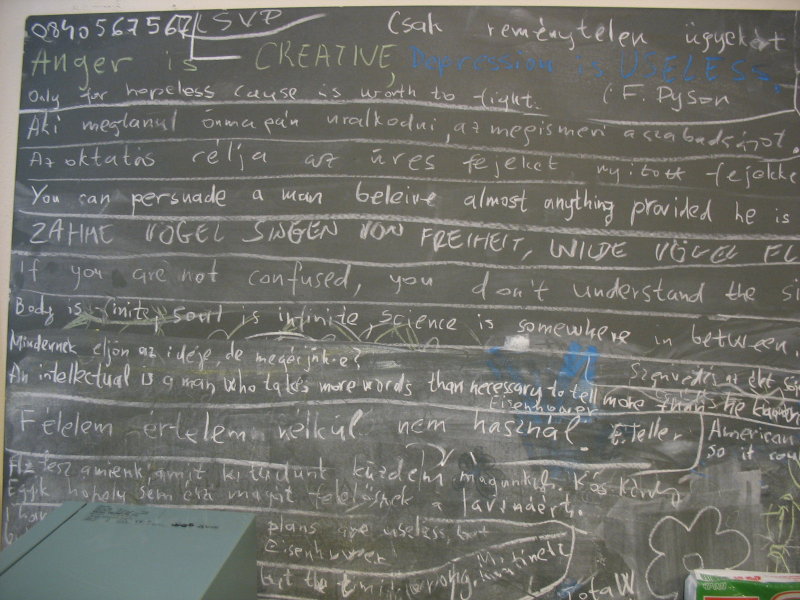 0840567567 LSVP
Csak reménytelen ügyekért
Anger is CREATIVE, Depression is USELESS.
Only for hopeless cause is worth to fight. (F. Dyson
Aki megtanul önmagán uralkodni, az megismeri a szabadságot.
Az oktatás célja az üres fejeket nyitott fejekké
You can persuade a man beleive almost anything provided he is
ZAHME VÖGEL SINGEN VON FREIHEIT, WILDE VÖGEL FL
If you are not confused, you don't understand the si
Body is finite, soul is infinite, science is somewhere in between.
Mindennek eljön az ideje, de megérjük-e?
An intellectual is a man who takes more words than necessary to tell more than he knows
Eisenhower
Félelem értelem nélkül nem használ. E. Teller
American
so it
Az lesz amienk amit ki tudunk küzdeni magunknak. Kós Károly
Egyik hópehely sem érzi magát felelősnek a lavináért.
plans are useless, but
Eisenhower
but the
Total W